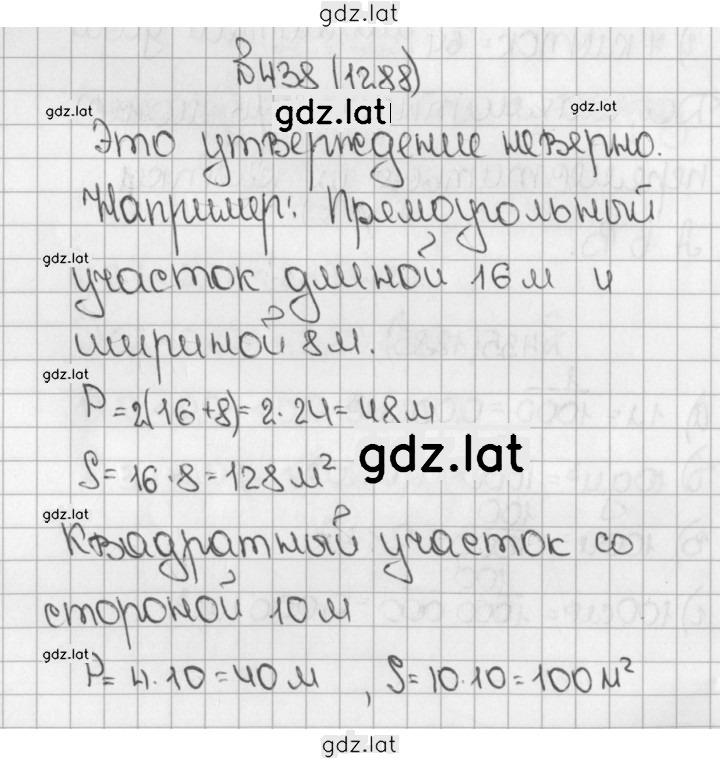 gdz.lat
В438 (1288)
gdz.lat
gdz.lat
gdz.lat
Это утверждение неверно.
Например: Прямоугольный
gdz.lat
участок длиной 16 м и
шириной 8 м.
gdz.lat
P = 2(16 + 8) = 2 · 24 = 48 м
gdz.lat
S = 16 · 8 = 128 м²
gdz.lat
Квадратный участок со
стороной 10 м
gdz.lat
P = 4 · 10 = 40 м , S = 10 · 10 = 100 м²
gdz.lat